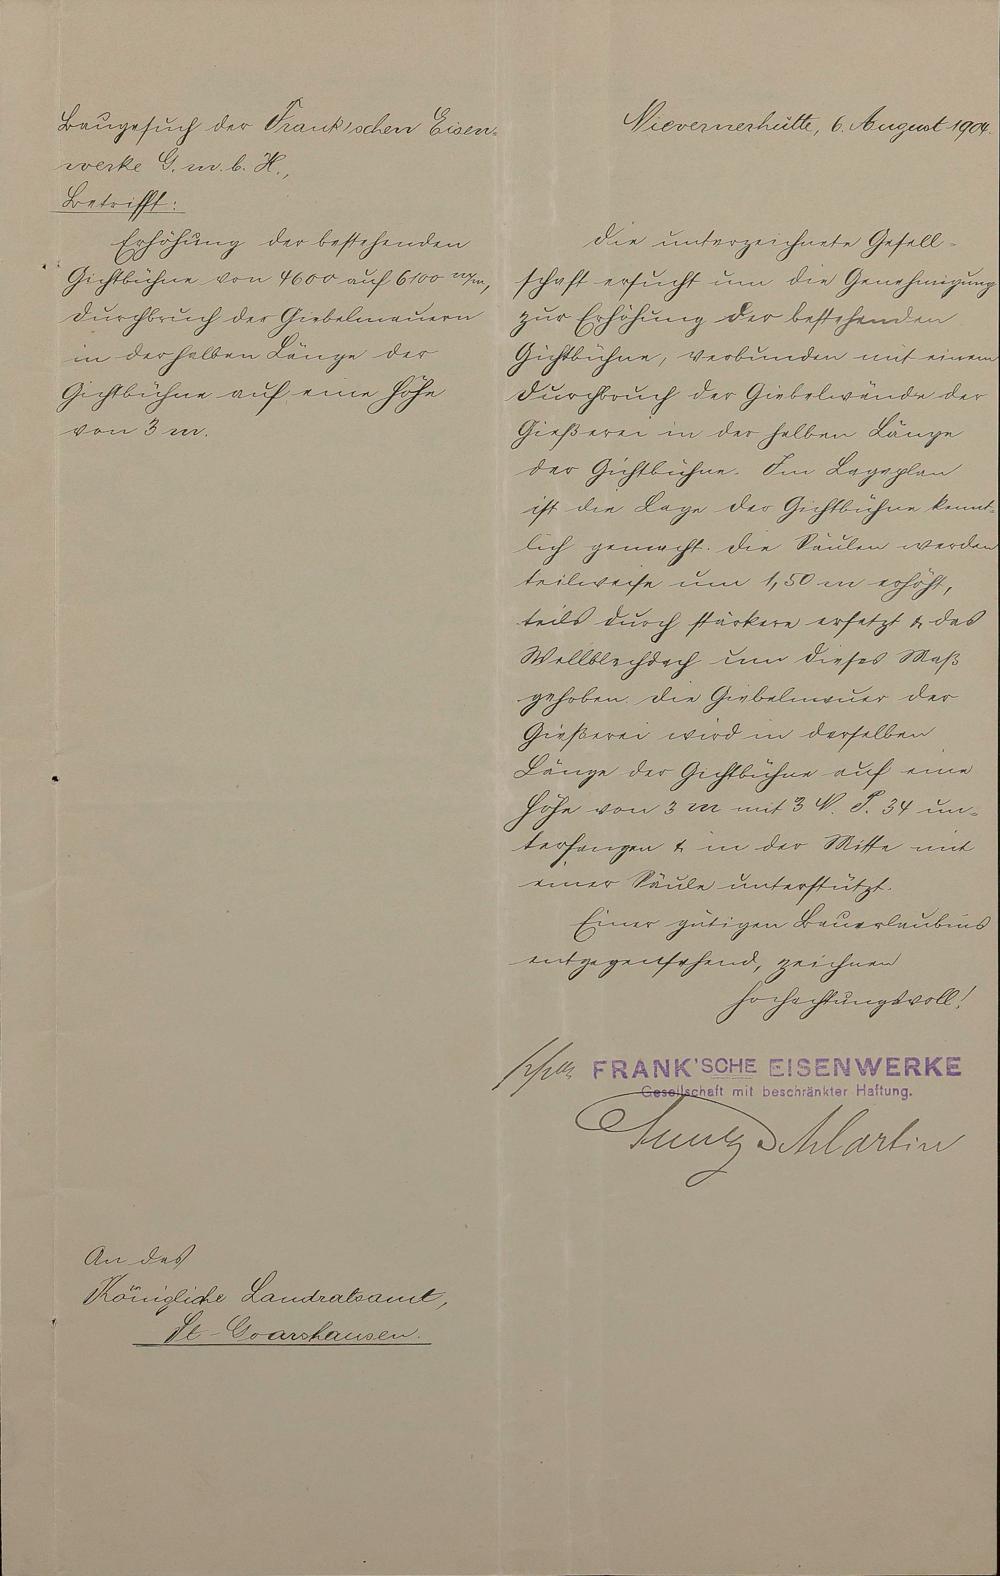 Baugesuch der Frank'schen Eisen-
werke G. m. b. H.,
Betrifft:
Erhöhung der bestehenden
Gichtbühne von 4600 auf 6100 m/m,
Durchbruch der Giebelmauern
in derhalben Länge der
Gichtbühne auf eine Höhe
von 3 m.
An das
Königliche Landratsamt,
St. Goarshausen.
Nievernerhütte, 6. August 1904.
Die unterzeichnete Gesell-
schaft ersucht um die Genehmigung
zur Erhöhung der bestehenden
Gichtbühne, verbunden mit einem
Durchbruch der Giebelwände der
Gießerei in der halben Länge
der Gichtbühne. Im Lageplan
ist die Lage der Gichtbühne kennt-
lich gemacht. Die Säulen werden
teilweise um 1,50 m erhöht,
teils durch stärkere ersetzt & das
Wellblechdach um dieses Maß
gehoben. Die Giebelmauer der
Gießerei wird in derselben
Länge der Gichtbühne auf eine
Höhe von 3 m mit 3 N. P. 34 un-
terfangen & in der Mitte mit
einer Säule unterstützt.
Einer gütigen Bauerlaubnis
entgegensehend, zeichnen
Hochachtungsvoll!
ppa FRANK'SCHE EISENWERKE
Gesellschaft mit beschränkter Haftung.
Martin